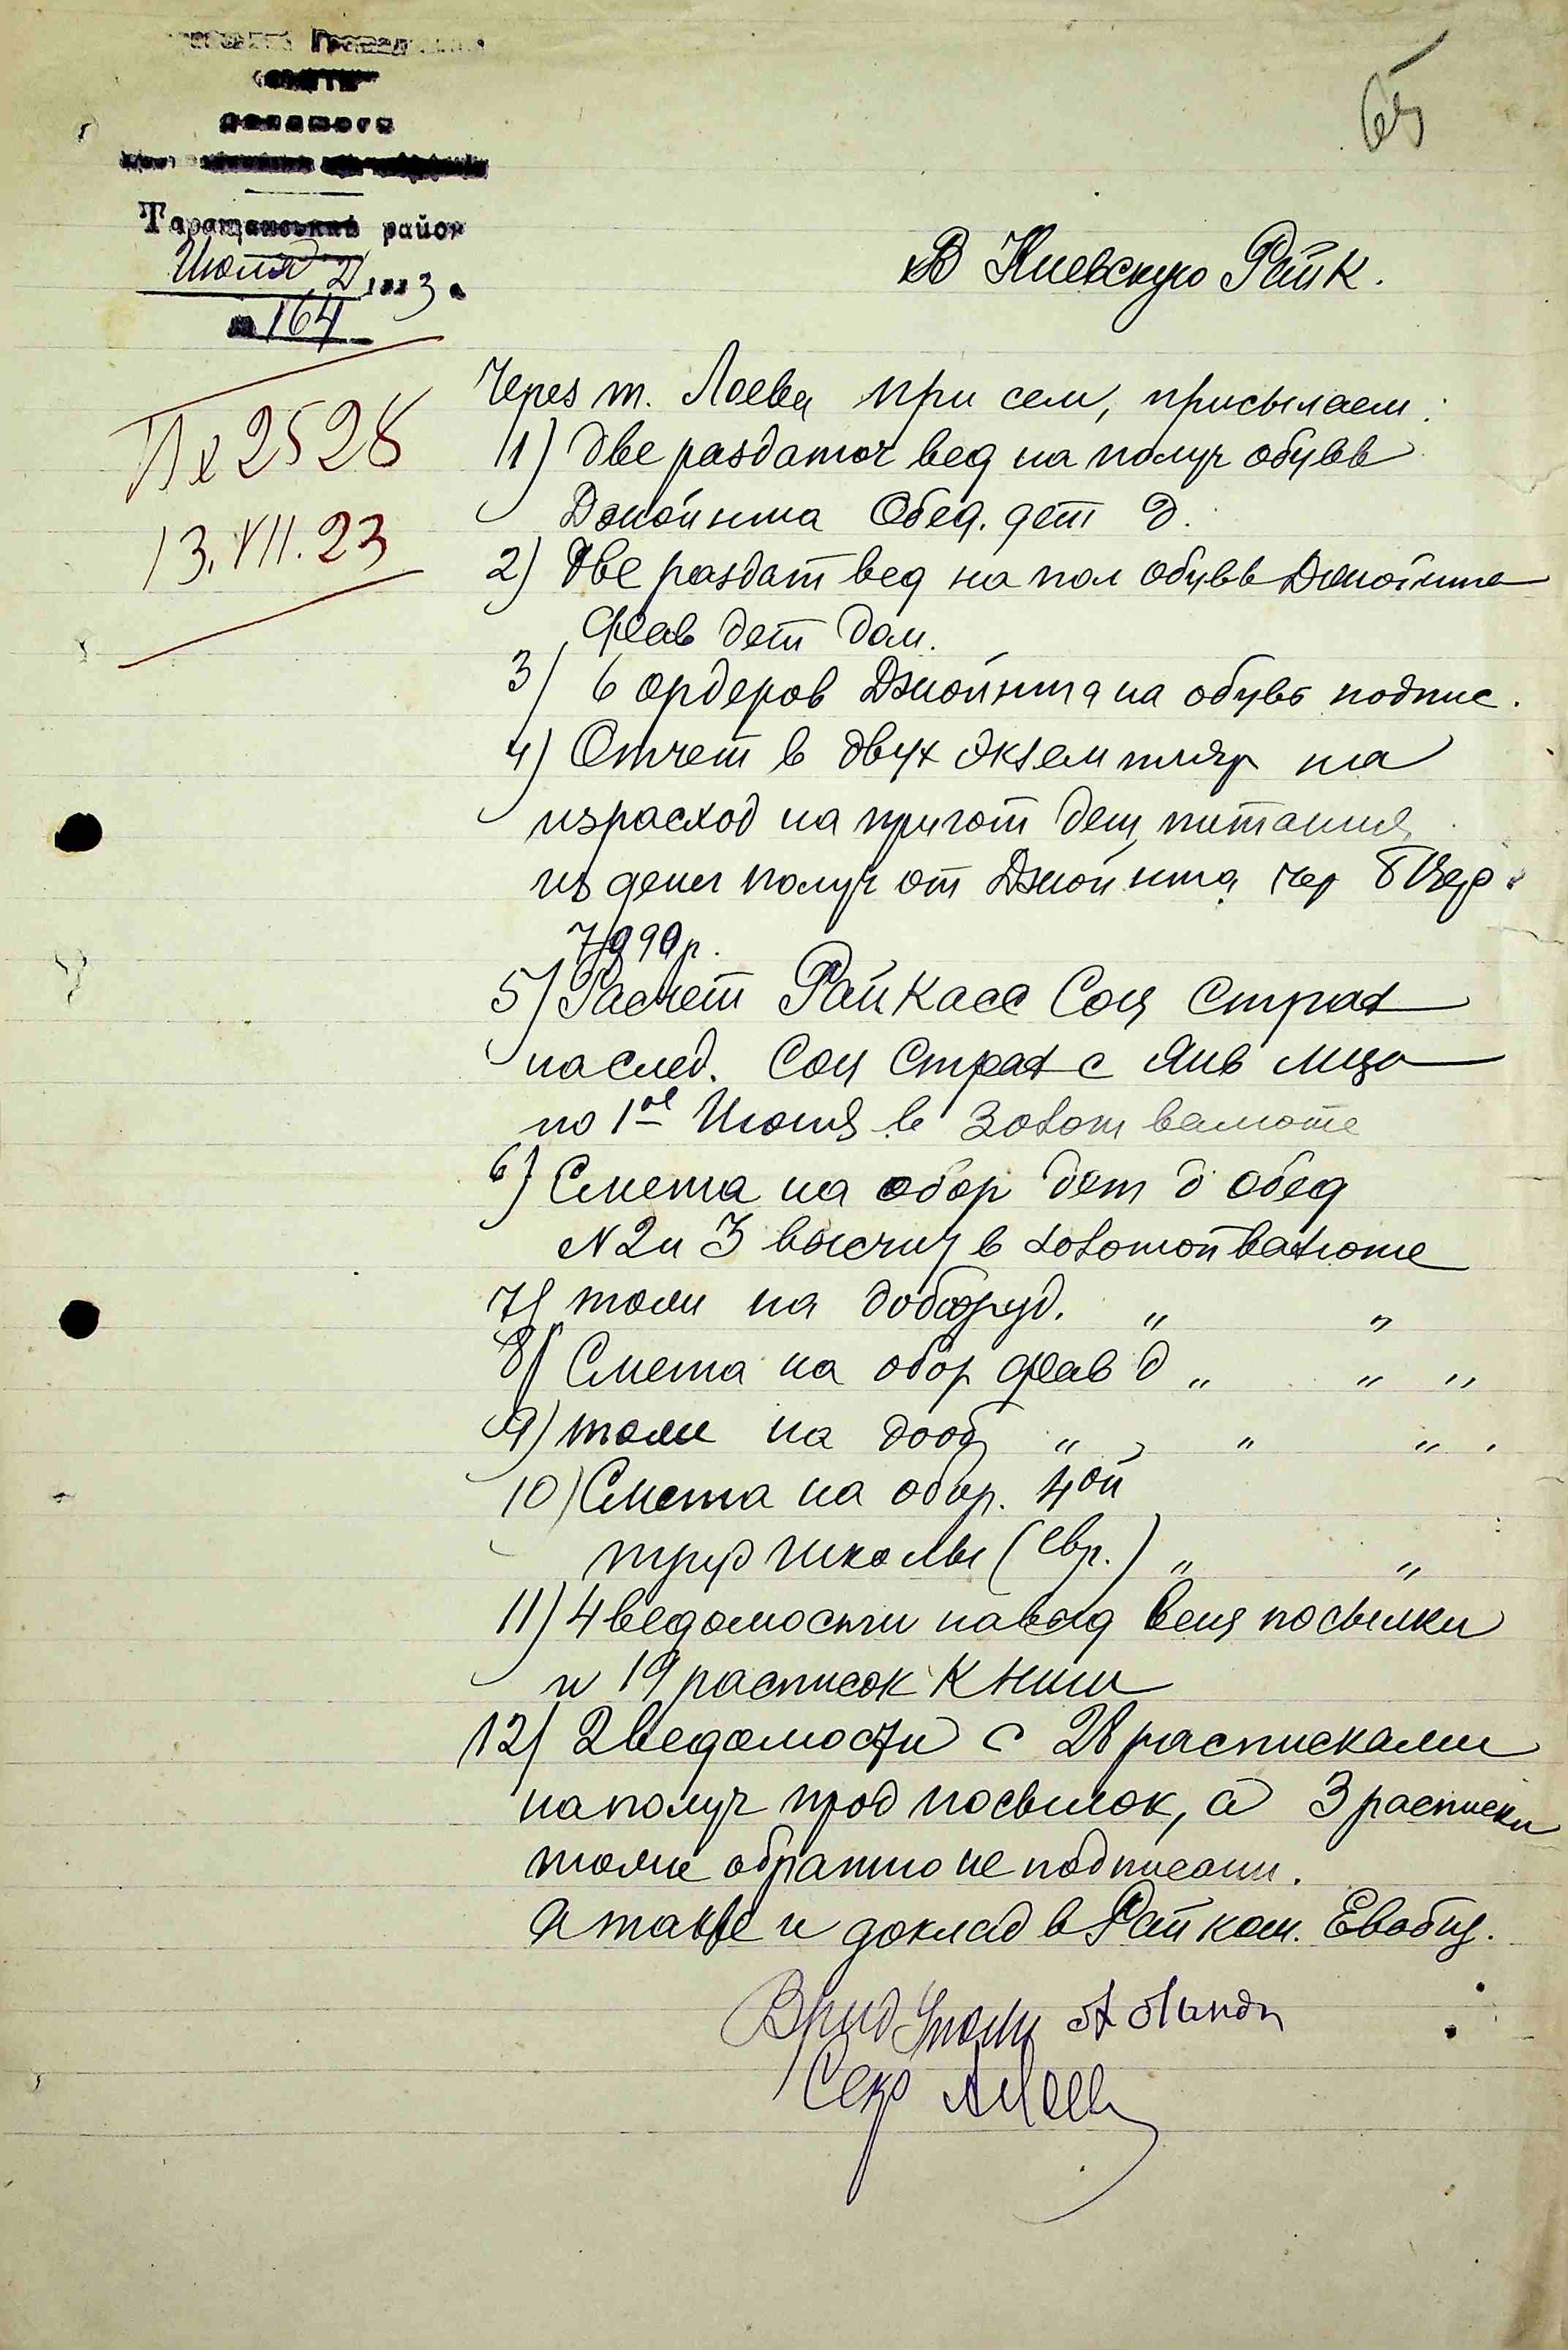 65
Таращанський район
Июля 2 1923
164
Вх 2528
13.VII.23
В Киевскую Райк.
Через т. Лоева при сем, присылаем:
1) Две раздаточ вед на получ обувв
Джойнта Обед. дет д.
2) Две раздат вед на пол обувв Джойнта
дет дом.
3) 6 ордеров Джойнта на обувь подпис.
4) Отчет в двух экземпляр на
израсход на пригот дет питания
из денег получ от Джойнта чер
5) Расчет Райкасс Соц Страх
на след. Соц Страх с Янв мца
по 1ое Июня в золот валюте
6) Смета на обор дет д обед
N 2 и 3 высчит в золотой валюте
7) тоже на дооборуд. " "
8) Смета на обор д " " "
9) тоже на дооб " " "
10) Смета на обор. 4ой
труд школы (Евр.) " "
11) 4 ведомости на вещ посылки
и 19 расписок к ним
12) 2 ведомости с 28 расписками
на получ прод посылок, а 3 расписки
тоже обратно не подписани.
А также и доклад в Райком. Евобщ.
Врид
Секр